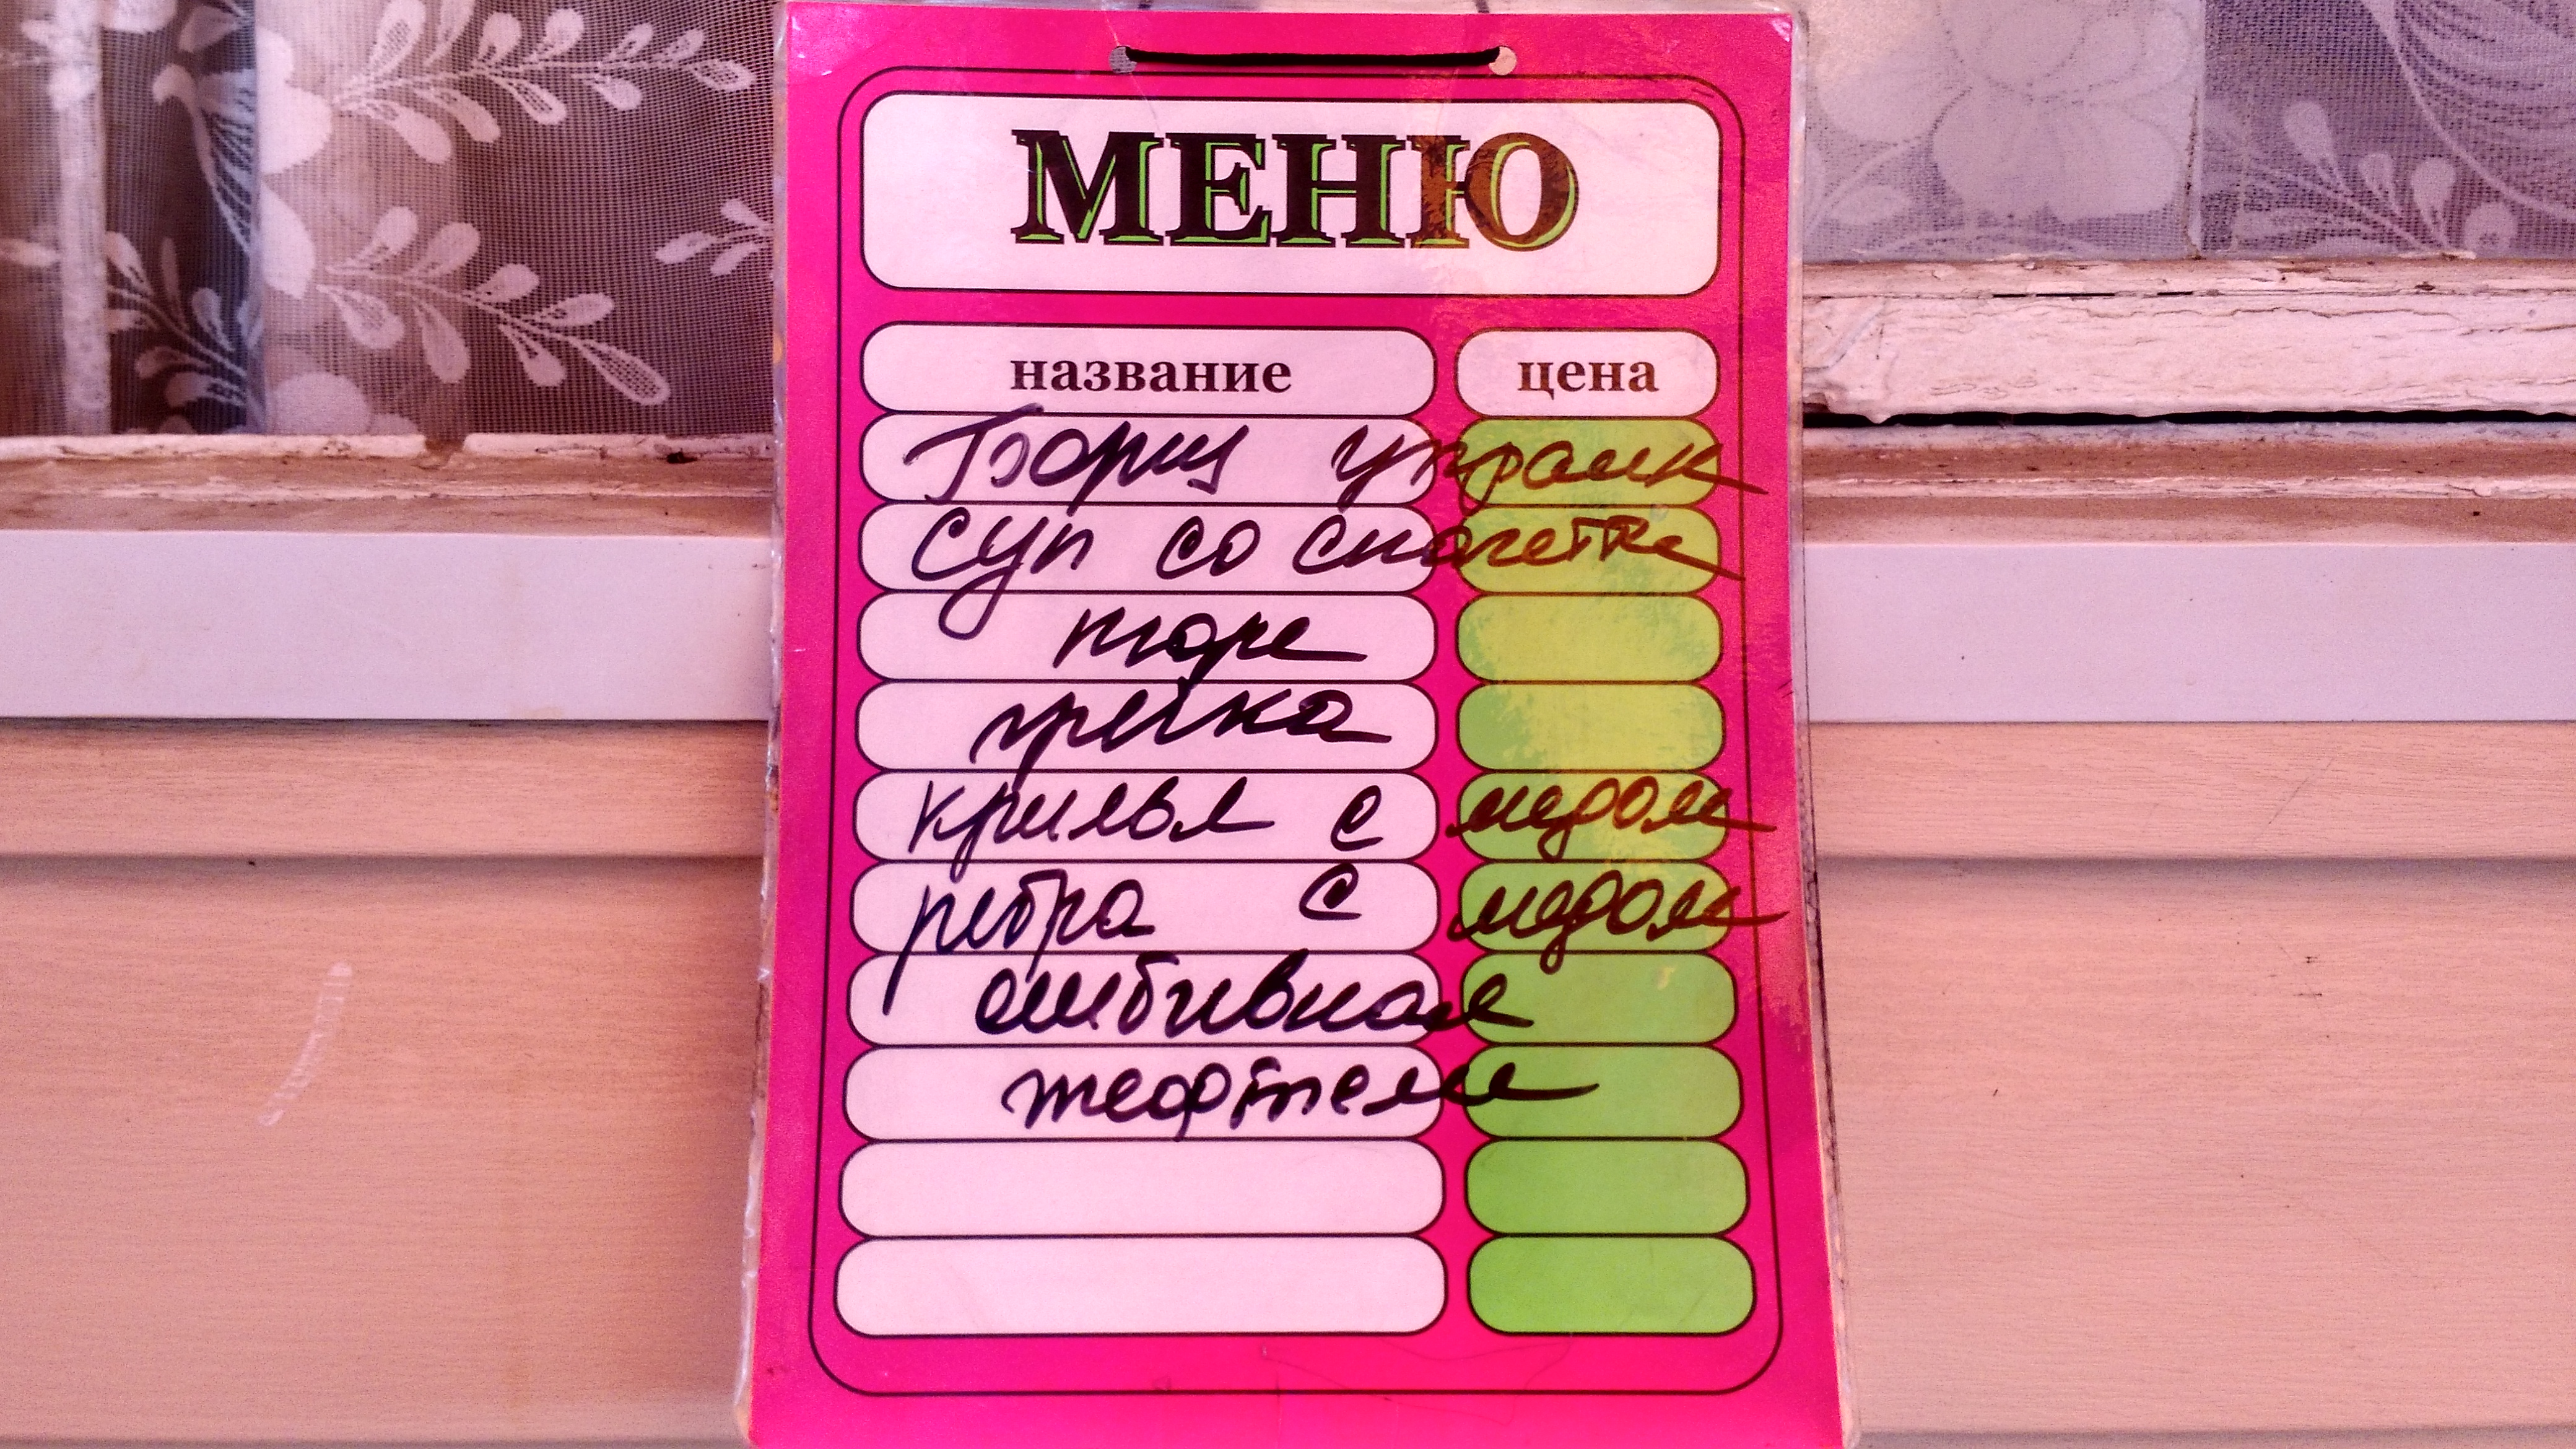 МЕНЮ
название цена
Борщ украик
суп со спагетте
пюре
гречка
крилья с медом
ребра с медом
отбивная
тефтели